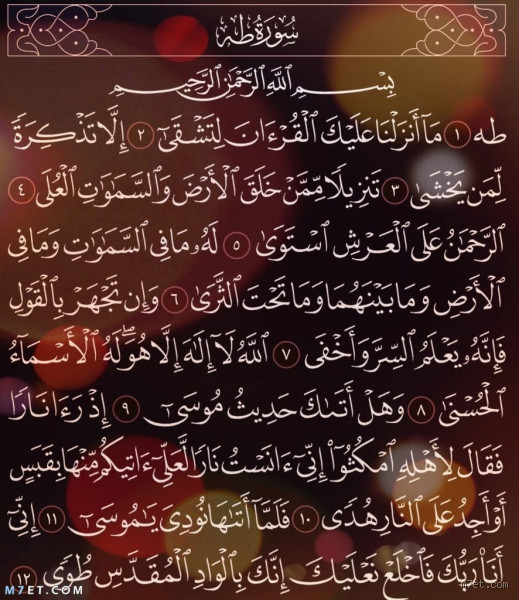 سُورَةُ طه
بِسْمِ ٱللَّهِ ٱلرَّحْمَٰنِ ٱلرَّحِيمِ
طه ١ مَآ أَنزَلْنَا عَلَيْكَ ٱلْقُرْءَانَ لِتَشْقَىٰٓ ٢ إِلَّا تَذْكِرَةً
لِّمَن يَخْشَىٰ ٣ تَنزِيلًا مِّمَّنْ خَلَقَ ٱلْأَرْضَ وَٱلسَّمَٰوَٰتِ ٱلْعُلَى ٤
ٱلرَّحْمَٰنُ عَلَى ٱلْعَرْشِ ٱسْتَوَىٰ ٥ لَهُۥ مَا فِى ٱلسَّمَٰوَٰتِ وَمَا فِى
ٱلْأَرْضِ وَمَا بَيْنَهُمَا وَمَا تَحْتَ ٱلثَّرَىٰ ٦ وَإِن تَجْهَرْ بِٱلْقَوْلِ
فَإِنَّهُۥ يَعْلَمُ ٱلسِّرَّ وَأَخْفَى ٧ ٱللَّهُ لَآ إِلَٰهَ إِلَّا هُوَ ۖ لَهُ ٱلْأَسْمَآءُ
ٱلْحُسْنَىٰ ٨ وَهَلْ أَتَىٰكَ حَدِيثُ مُوسَىٰٓ ٩ إِذْ رَءَا نَارًا
فَقَالَ لِأَهْلِهِ ٱمْكُثُوٓا۟ إِنِّىٓ ءَانَسْتُ نَارًا لَّعَلِّىٓ ءَاتِيكُم مِّنْهَا بِقَبَسٍ
أَوْ أَجِدُ عَلَى ٱلنَّارِ هُدًى ١٠ فَلَمَّآ أَتَىٰهَا نُودِىَ يَٰمُوسَىٰٓ ١١ إِنِّىٓ
أَنَا۠ رَبُّكَ فَٱخْلَعْ نَعْلَيْكَ ۖ إِنَّكَ بِٱلْوَادِ ٱلْمُقَدَّسِ طُوًى ١٢
M7ET.COM
m7et.com